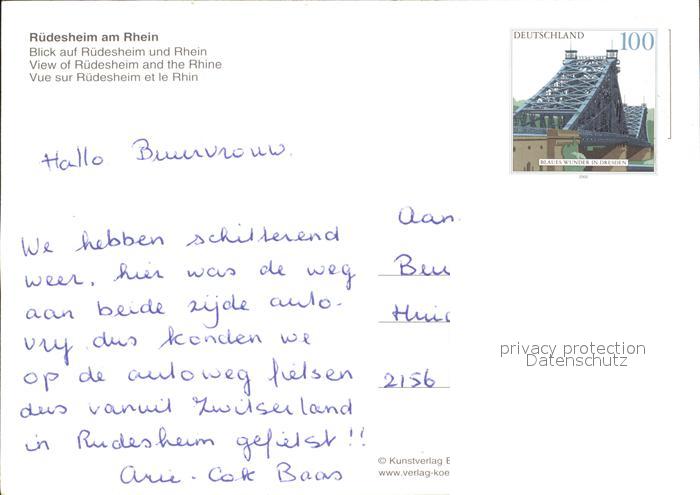 Rüdesheim am Rhein
Blick auf Rüdesheim und Rhein
View of Rüdesheim and the Rhine
Vue sur Rüdesheim et le Rhin
DEUTSCHLAND 100
BLAUES WUNDER IN DRESDEN
2000
Hallo Buurvrouw.
We hebben schitterend
weer, hier was de weg
aan beide zijde auto-
vrij dus konden we
op de autoweg fietsen
dus vanuit Zwitserland
in Rudesheim gefietst!!
Arie - Cok Baas
Aan
Buu
2156
privacy protection
Datenschutz
© Kunstverlag E
www.verlag-koe